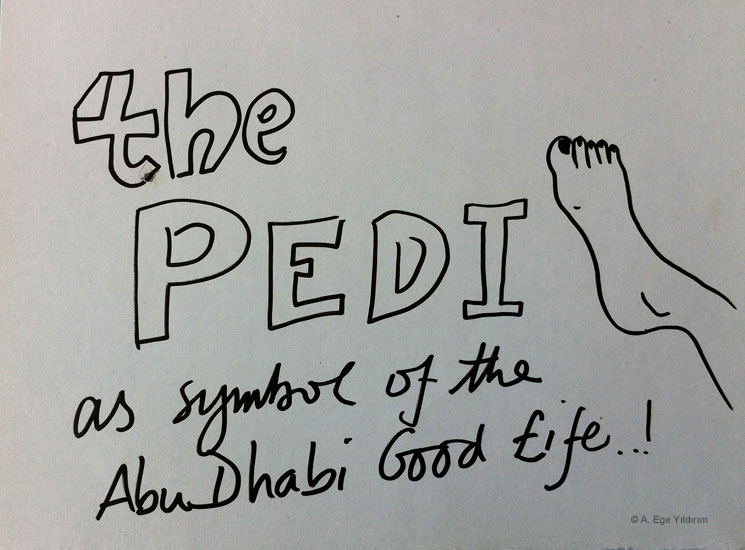 the
PEDI
as symbol of the
Abu Dhabi Good Life..!
© A. Ege Yıldırım